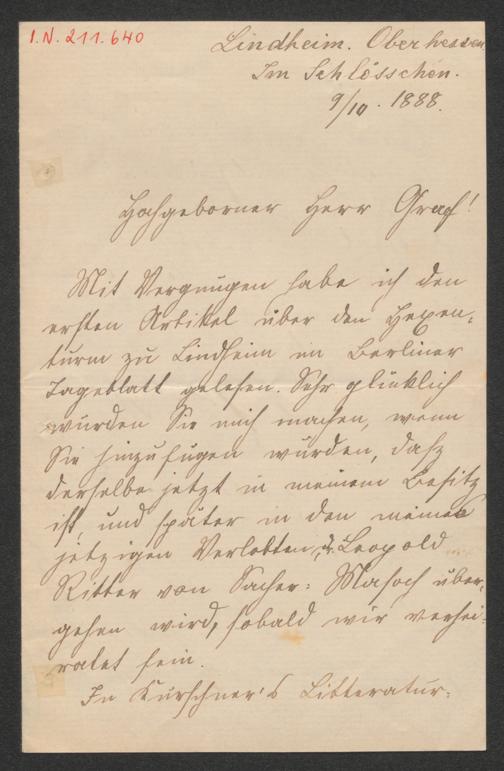 I.N. 211.640
Lindheim. Oberhessen.
Im Schlösschen.
9/10. 1888.
Hochgeborner Herr Graf!
Mit Vergnügen habe ich den
ersten Artikel über den Hexen-
turm zu Lindheim im Berliner
Tageblatt gelesen. Sehr glücklich
würden Sie mich machen, wenn
Sie hinzufügen würden, daß
derselbe jetzt in meinem Besitz
ist und später in den meines
jetzigen Verlobten, Leopold
Ritter von Sacher-Masoch über-
gehen wird, sobald wir verhei-
ratet sein.
In Kürschner's Litteratur-